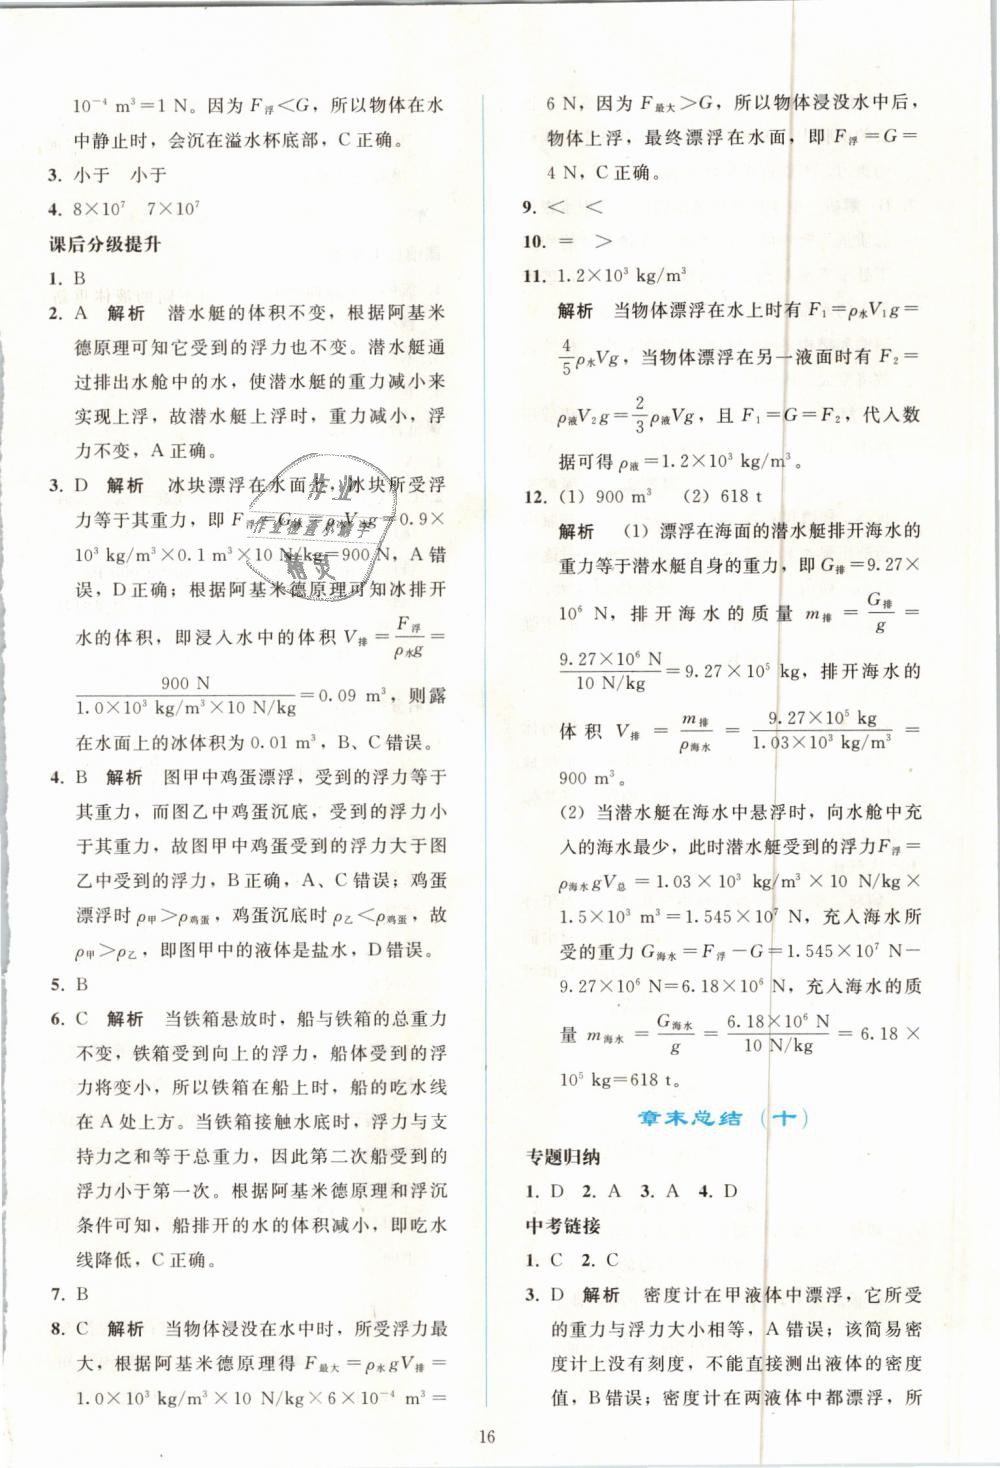 10⁻⁴ m³=1 N。因为 F浮<G，所以物体在水
中静止时，会沉在溢水杯底部，C 正确。
3. 小于　小于
4. 8×10⁷　7×10⁷
课后分级提升
1. B
2. A　解析　潜水艇的体积不变，根据阿基米
德原理可知它受到的浮力也不变。潜水艇通
过排出水舱中的水，使潜水艇的重力减小来
实现上浮，故潜水艇上浮时，重力减小，浮
力不变，A 正确。
3. D　解析　冰块漂浮在水面上，冰块所受浮
力等于其重力，即 F =G = V g=0.9×
10³ kg/m³×0.1 m³×10 N/kg=900 N，A 错
误，D 正确；根据阿基米德原理可知冰排开
水的体积，即浸入水中的体积 V排=F浮/ρ水g=
900 N/(1.0×10³ kg/m³×10 N/kg)=0.09 m³，则露
在水面上的冰体积为 0.01 m³，B、C 错误。
4. B　解析　图甲中鸡蛋漂浮，受到的浮力等于
其重力，而图乙中鸡蛋沉底，受到的浮力小于
其重力，故图甲中鸡蛋受到的浮力大于图
乙中受到的浮力，B 正确，A、C 错误；鸡蛋
漂浮时 ρ甲>ρ鸡蛋，鸡蛋沉底时 ρ乙<ρ鸡蛋，故
ρ甲>ρ乙，即图甲中的液体是盐水，D 错误。
5. B
6. C　解析　当铁箱悬放时，船与铁箱的总重力
不变，铁箱受到向上的浮力，船体受到的浮
力将变小，所以铁箱在船上时，船的吃水线
在 A 处上方。当铁箱接触水底时，浮力与支
持力之和等于总重力，因此第二次船受到的
浮力小于第一次。根据阿基米德原理和浮沉
条件可知，船排开的水的体积减小，即吃水
线降低，C 正确。
7. B
8. C　解析　当物体浸没在水中时，所受浮力最
大，根据阿基米德原理得 F最大=ρ水gV排=
1.0×10³ kg/m³×10 N/kg×6×10⁻⁴ m³=
6 N，因为 F最大>G，所以物体浸没水中后，
物体上浮，最终漂浮在水面，即 F浮=G=
4 N，C 正确。
9. <　<
10. =　>
11. 1.2×10³ kg/m³
解析　当物体漂浮在水上时有 F₁=ρ水V₁g=
4/5ρ水Vg，当物体漂浮在另一液面时有 F₂=
ρ液V₂g=2/3ρ液Vg，且 F₁=G=F₂，代入数
据可得 ρ液=1.2×10³ kg/m³。
12. (1) 900 m³　(2) 618 t
解析　(1) 漂浮在海面的潜水艇排开海水的
重力等于潜水艇自身的重力，即 G排=9.27×
10⁶ N，排开海水的质量 m排=G排/g=
9.27×10⁶ N/10 N/kg=9.27×10⁵ kg，排开海水的
体积 V排=m排/ρ海水=9.27×10⁵ kg/1.03×10³ kg/m³=
900 m³。
(2) 当潜水艇在海水中悬浮时，向水舱中充
入的海水最少，此时潜水艇受到的浮力F浮=
ρ海水gV总=1.03×10³ kg/m³×10 N/kg×
1.5×10³ m³=1.545×10⁷ N，充入海水所
受的重力 G海水=F浮-G=1.545×10⁷ N-
9.27×10⁶ N=6.18×10⁶ N，充入海水的质
量 m海水=G海水/g=6.18×10⁶ N/10 N/kg=6.18×
10⁵ kg=618 t。
章末总结（十）
专题归纳
1. D　2. A　3. A　4. D
中考链接
1. C　2. C
3. D　解析　密度计在甲液体中漂浮，它所受
的重力与浮力大小相等，A 错误；该简易密
度计上没有刻度，不能直接测出液体的密度
值，B 错误；密度计在两液体中都漂浮，所
16
作业
作业检查小助手
精灵